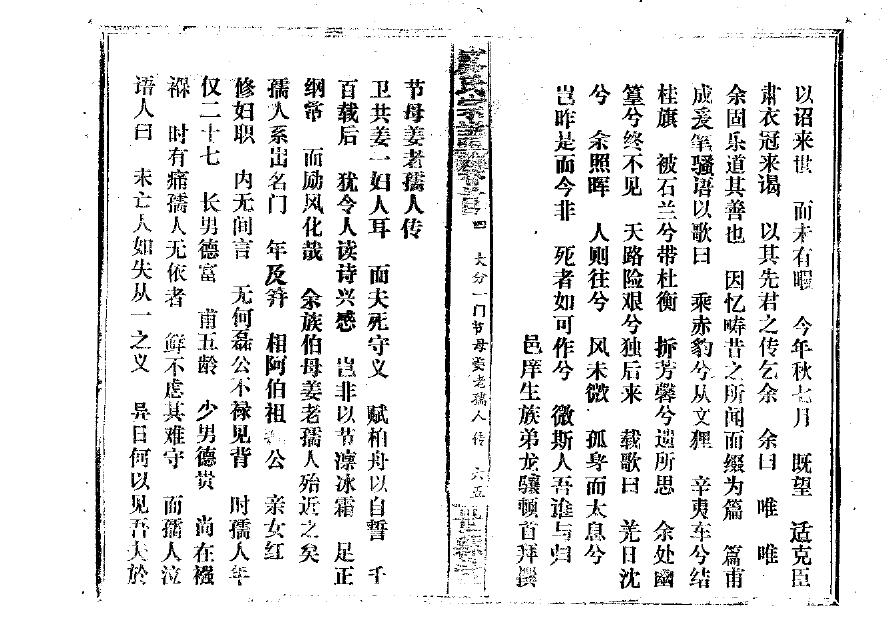 以诏来世 而未有暇 今年秋七月 既望 适克臣
肃衣冠来谒 以其先君之传乞余 余曰 唯 唯
余固乐道其善也 因忆畴昔之所闻而缀为篇 篇甫
成爰笔骚语以歌曰 乘赤豹兮从文狸 辛夷车兮结
桂旗 被石兰兮带杜衡 折芳馨兮遗所思 余处幽
篁兮终不见 天路险艰兮独后来 载歌曰 羌日沈
兮 余照晖 人则往兮 风未微 孤身而太息兮
岂昨是而今非 死者如可作兮 微斯人吾谁与归
邑庠生族弟龙骧顿首拜撰
氏宗谱 四 大分一门节母姜老孺人传 六五
节母姜老孺人传
卫共姜一妇人耳 而夫死守义 赋柏舟以自誓 千
百载后 犹令人读诗兴感 岂非以节凛冰霜 足正
纲常 而励风化哉 余族伯母姜老孺人殆近之矣
孺人系出名门 年及笄 相阿伯祖 公 亲女红
修妇职 内无间言 无何磊公不禄见背 时孺人年
仅二十七 长男德富 甫五龄 少男德贵 尚在襁
褓 时有痛孺人无依者 鲜不虑其难守 而孺人泣
语人曰 未亡人如失从一之义 异日何以见吾夫於